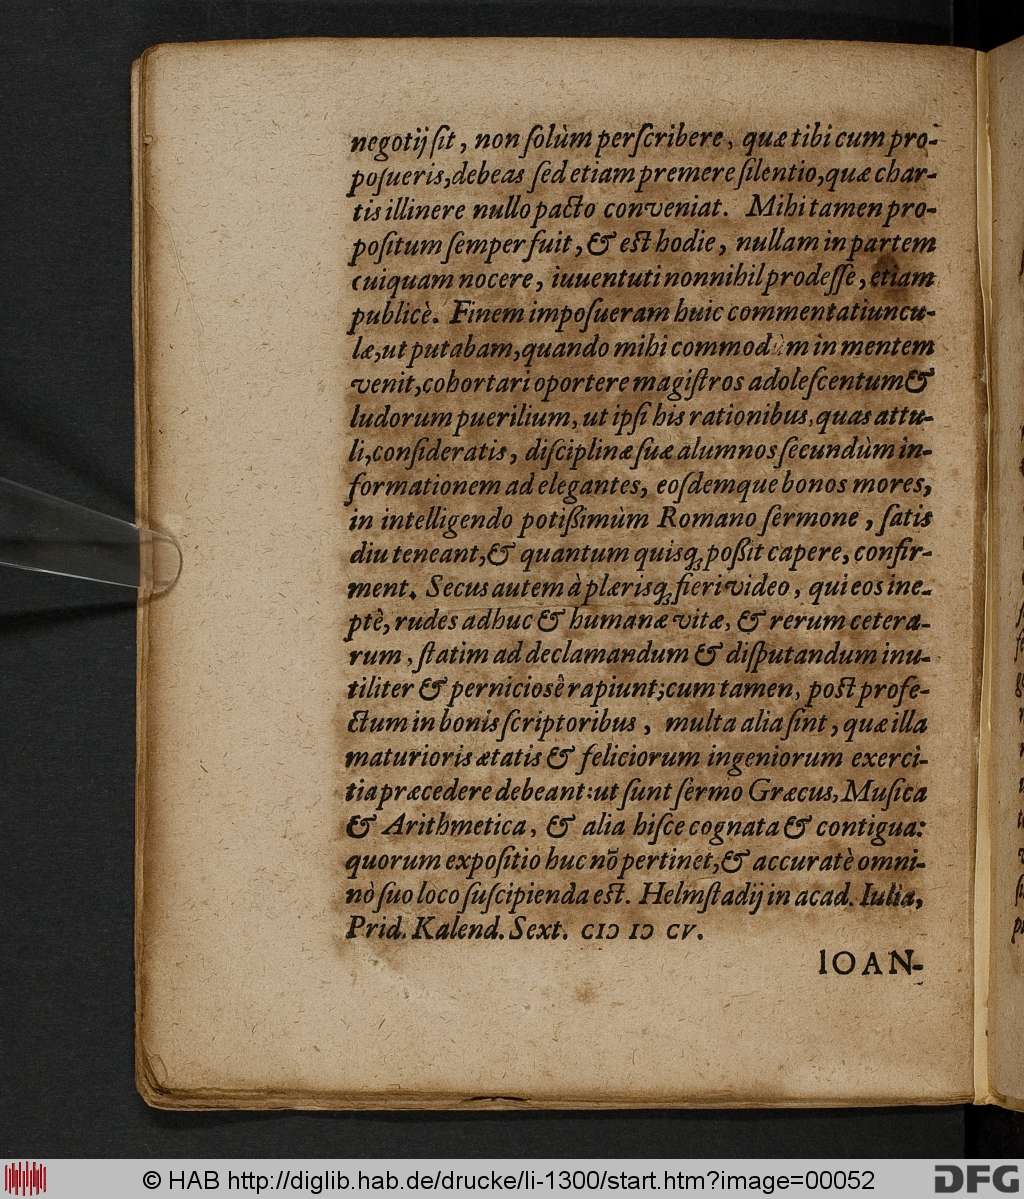 negotij ſit, non ſolùm perſcribere, quæ tibi cum pro-
poſueris, debeas ſed etiam premere ſilentio, quæ char-
tis illinere nullo pacto conveniat. Mihi tamen pro-
poſitum ſemper fuit, & eſt hodie, nullam in partem
cuiquam nocere, iuuentuti nonnihil prodeſſe, etiam
publicè. Finem impoſueram huic commentatiuncu-
læ, ut putabam, quando mihi commodùm in mentem
venit, cohortari oportere magiſtros adoleſcentum &
ludorum puerilium, ut ipſi his rationibus, quas attu-
li, conſideratis, diſciplinæ ſuæ alumnos ſecundùm in-
formationem ad elegantes, eoſdemque bonos mores,
in intelligendo potißimùm Romano ſermone, ſatis
diu teneant, & quantum quisq; poßit capere, confir-
ment. Secus autem à plærisq; fieri video, qui eos ine-
ptè, rudes adhuc & humanæ vitæ, & rerum cetera-
rum, ſtatim ad declamandum & diſputandum inu-
tiliter & pernicioſè rapiunt; cum tamen, poſt profe-
ctum in bonis ſcriptoribus, multa alia ſint, quæ illa
maturioris ætatis & feliciorum ingeniorum exerci-
tia præcedere debeant: ut ſunt ſermo Græcus, Muſica
& Arithmetica, & alia hiſce cognata & contigua:
quorum expoſitio huc nõ pertinet, & accuratè omni-
nò ſuo loco ſuſcipienda eſt. Helmſtadij in acad. Iulia,
Prid. Kalend. Sext. CIↃ IↃ CV.
IOAN-
© HAB http://diglib.hab.de/drucke/li-1300/start.htm?image=00052
DFG